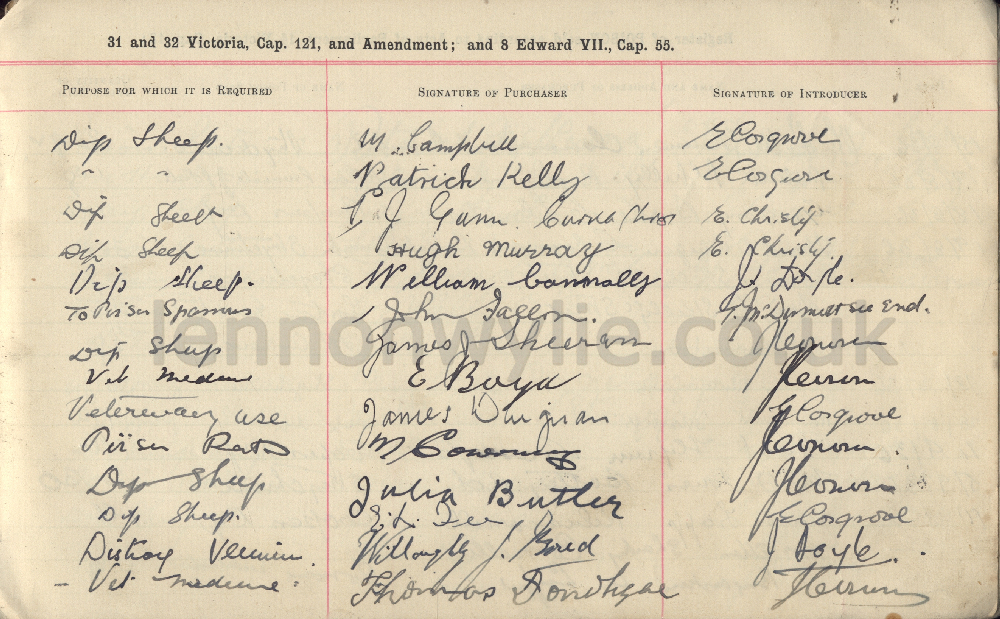 31 and 32 Victoria, Cap. 121, and Amendment; and 8 Edward VII., Cap. 55.
PURPOSE FOR WHICH IT IS REQUIRED SIGNATURE OF PURCHASER SIGNATURE OF INTRODUCER
Dip Sheep. M. Campbell E Cosgrove
" " Patrick Kelly E Cosgrove
Dip Sheep J Gunn E. Christy
Dip Sheep Hugh Murray E. Christy
Dip Sheep. William Connolly J Doyle.
To Poison Sparrows John Fallon.
Dip Sheep James Sheeran
Vet medicine E Boyd
Veterinary use James Duignan E Cosgrove
Poison Rats M
Dip Sheep Julia Butler
Dip Sheep. E Cosgrove
Destroy Vermin. Willoughby J. Bond J Doyle.
Vet medicine. Thomas
lennonwylie.co.uk